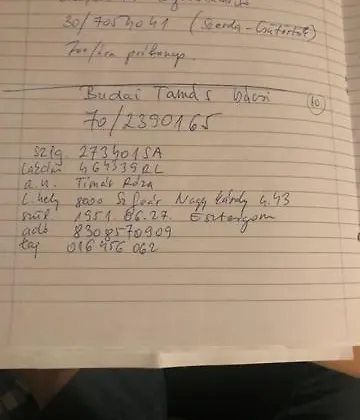 30/7054041 (Szerda-Csütörtök)
700/óra próbanap
Budai Tamás bácsi 10
70/2390165
szig 273401SA
464539RL
a.n. Timár Róza
l.hely 8000 Szfvár Nagy Károly u. 43
szül 1951. 06. 27. Esztergom
adó 8308570909
taj 016 456 062